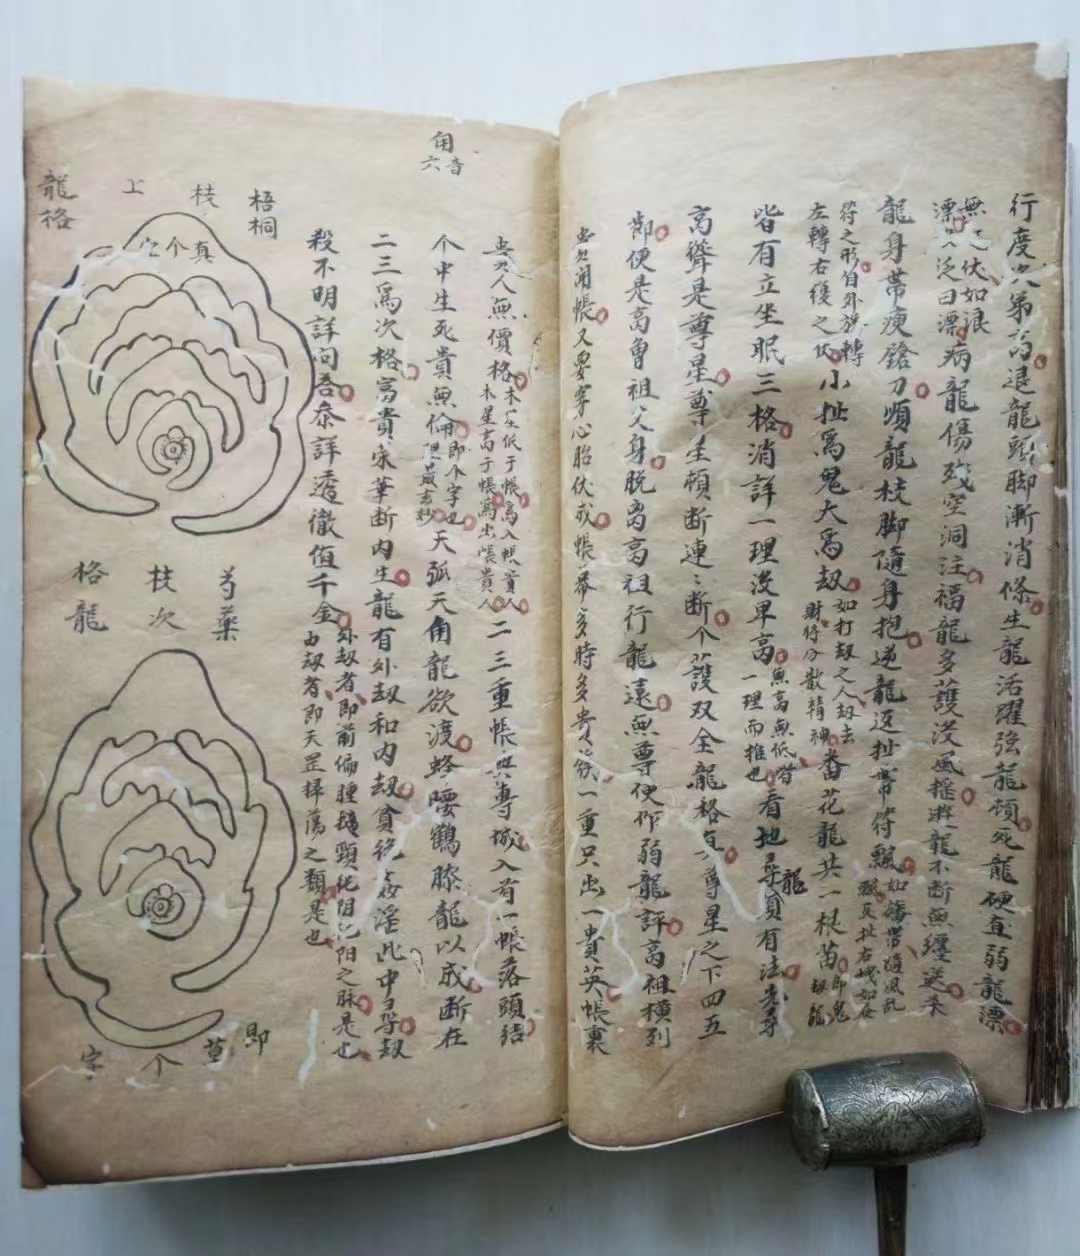 行度次第高退龍頭脚漸消條生龍活躍強龍頓死龍硬直弱龍漂
無 伏如浪
漂 泛曰漂病龍傷殘空洞注福龍多護没風搖 龍不斷無纏送
龍身帶 鎗刀順龍枝脚隨身抱逆龍逆扯帶符飄如 帶隨風乱
飄反扯右 如在
符之形自外旋轉
左轉右 之伏小扯爲鬼大爲劫如打劫之人劫去
財得分散精神番花龍共一根苗即鬼
劫龍
皆有立坐眠三格消詳一理没卑高無高無低皆
一理而推也看地尋龍實有法先尋
高聳是尊星尊星頓断連連断个護双全龍格真尊星之下四五
節便是高曾祖父身脱离高祖行龍遠無尊便作弱龍評高祖橫列
出開帳又要穿心胎伏成帳幕多時多貴 一重只出一貴英帳裏
貴人無價格木在低于帳爲入帳貴人
木星高于帳爲出帳貴人二三重帳 尊城入首一帳落頭結
个中生死貴無倫即个字也
最玄妙天弧天角龍欲渡蜂腰鶴膝龍以成断在
角音六
二三爲次格富貴榮華断内生龍有外劫和内劫貪 淫此中尋劫
殺不明詳問吾參詳透徹值千金外劫者即前偏腫 頸純阴純阳之脉是也
内劫者即天罡掃蕩之類是也
梧桐
枝
上
龍格
真个字
芍藥
枝次
格龍
即
个
字